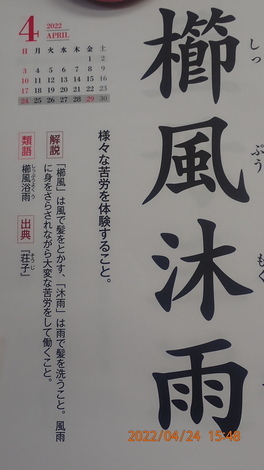 櫛風沐雨
しっ
ぷう
もく
様々な苦労を体験すること。
解説
「櫛風」は風で髪をとかす、「沐雨」は雨で髪を洗うこと。風雨
に身をさらされながら大変な苦労をして働くこと。
類語
櫛風浴雨
しっぷうよくう
出典
『荘子』
そうじ
4 2022 APRIL
日 月 火 水 木 金 土
1 2
3 4 5 6 7 8 9
10 11 12 13 14 15 16
17 18 19 20 21 22 23
24 25 26 27 28 29 30
2022/04/24 15:48